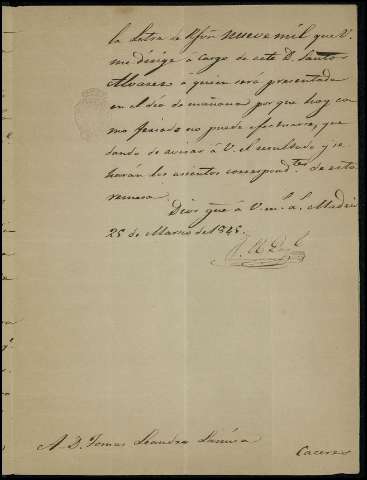 la Letra de R.ºn nueve mil que V.
me dirige á cargo de este D. Santos
Alvarez á quien será presentada
en el dia de mañana por que hoy co
mo feriado no puede efectuarse, que
dando de avisar á V. el resultado y se
harán los asientos correspond.tes de esta
remesa.
Dios gue. á V. m. a. Madrid
25 de Marzo de 1845.
A D. Tomas Leandro
Caceres